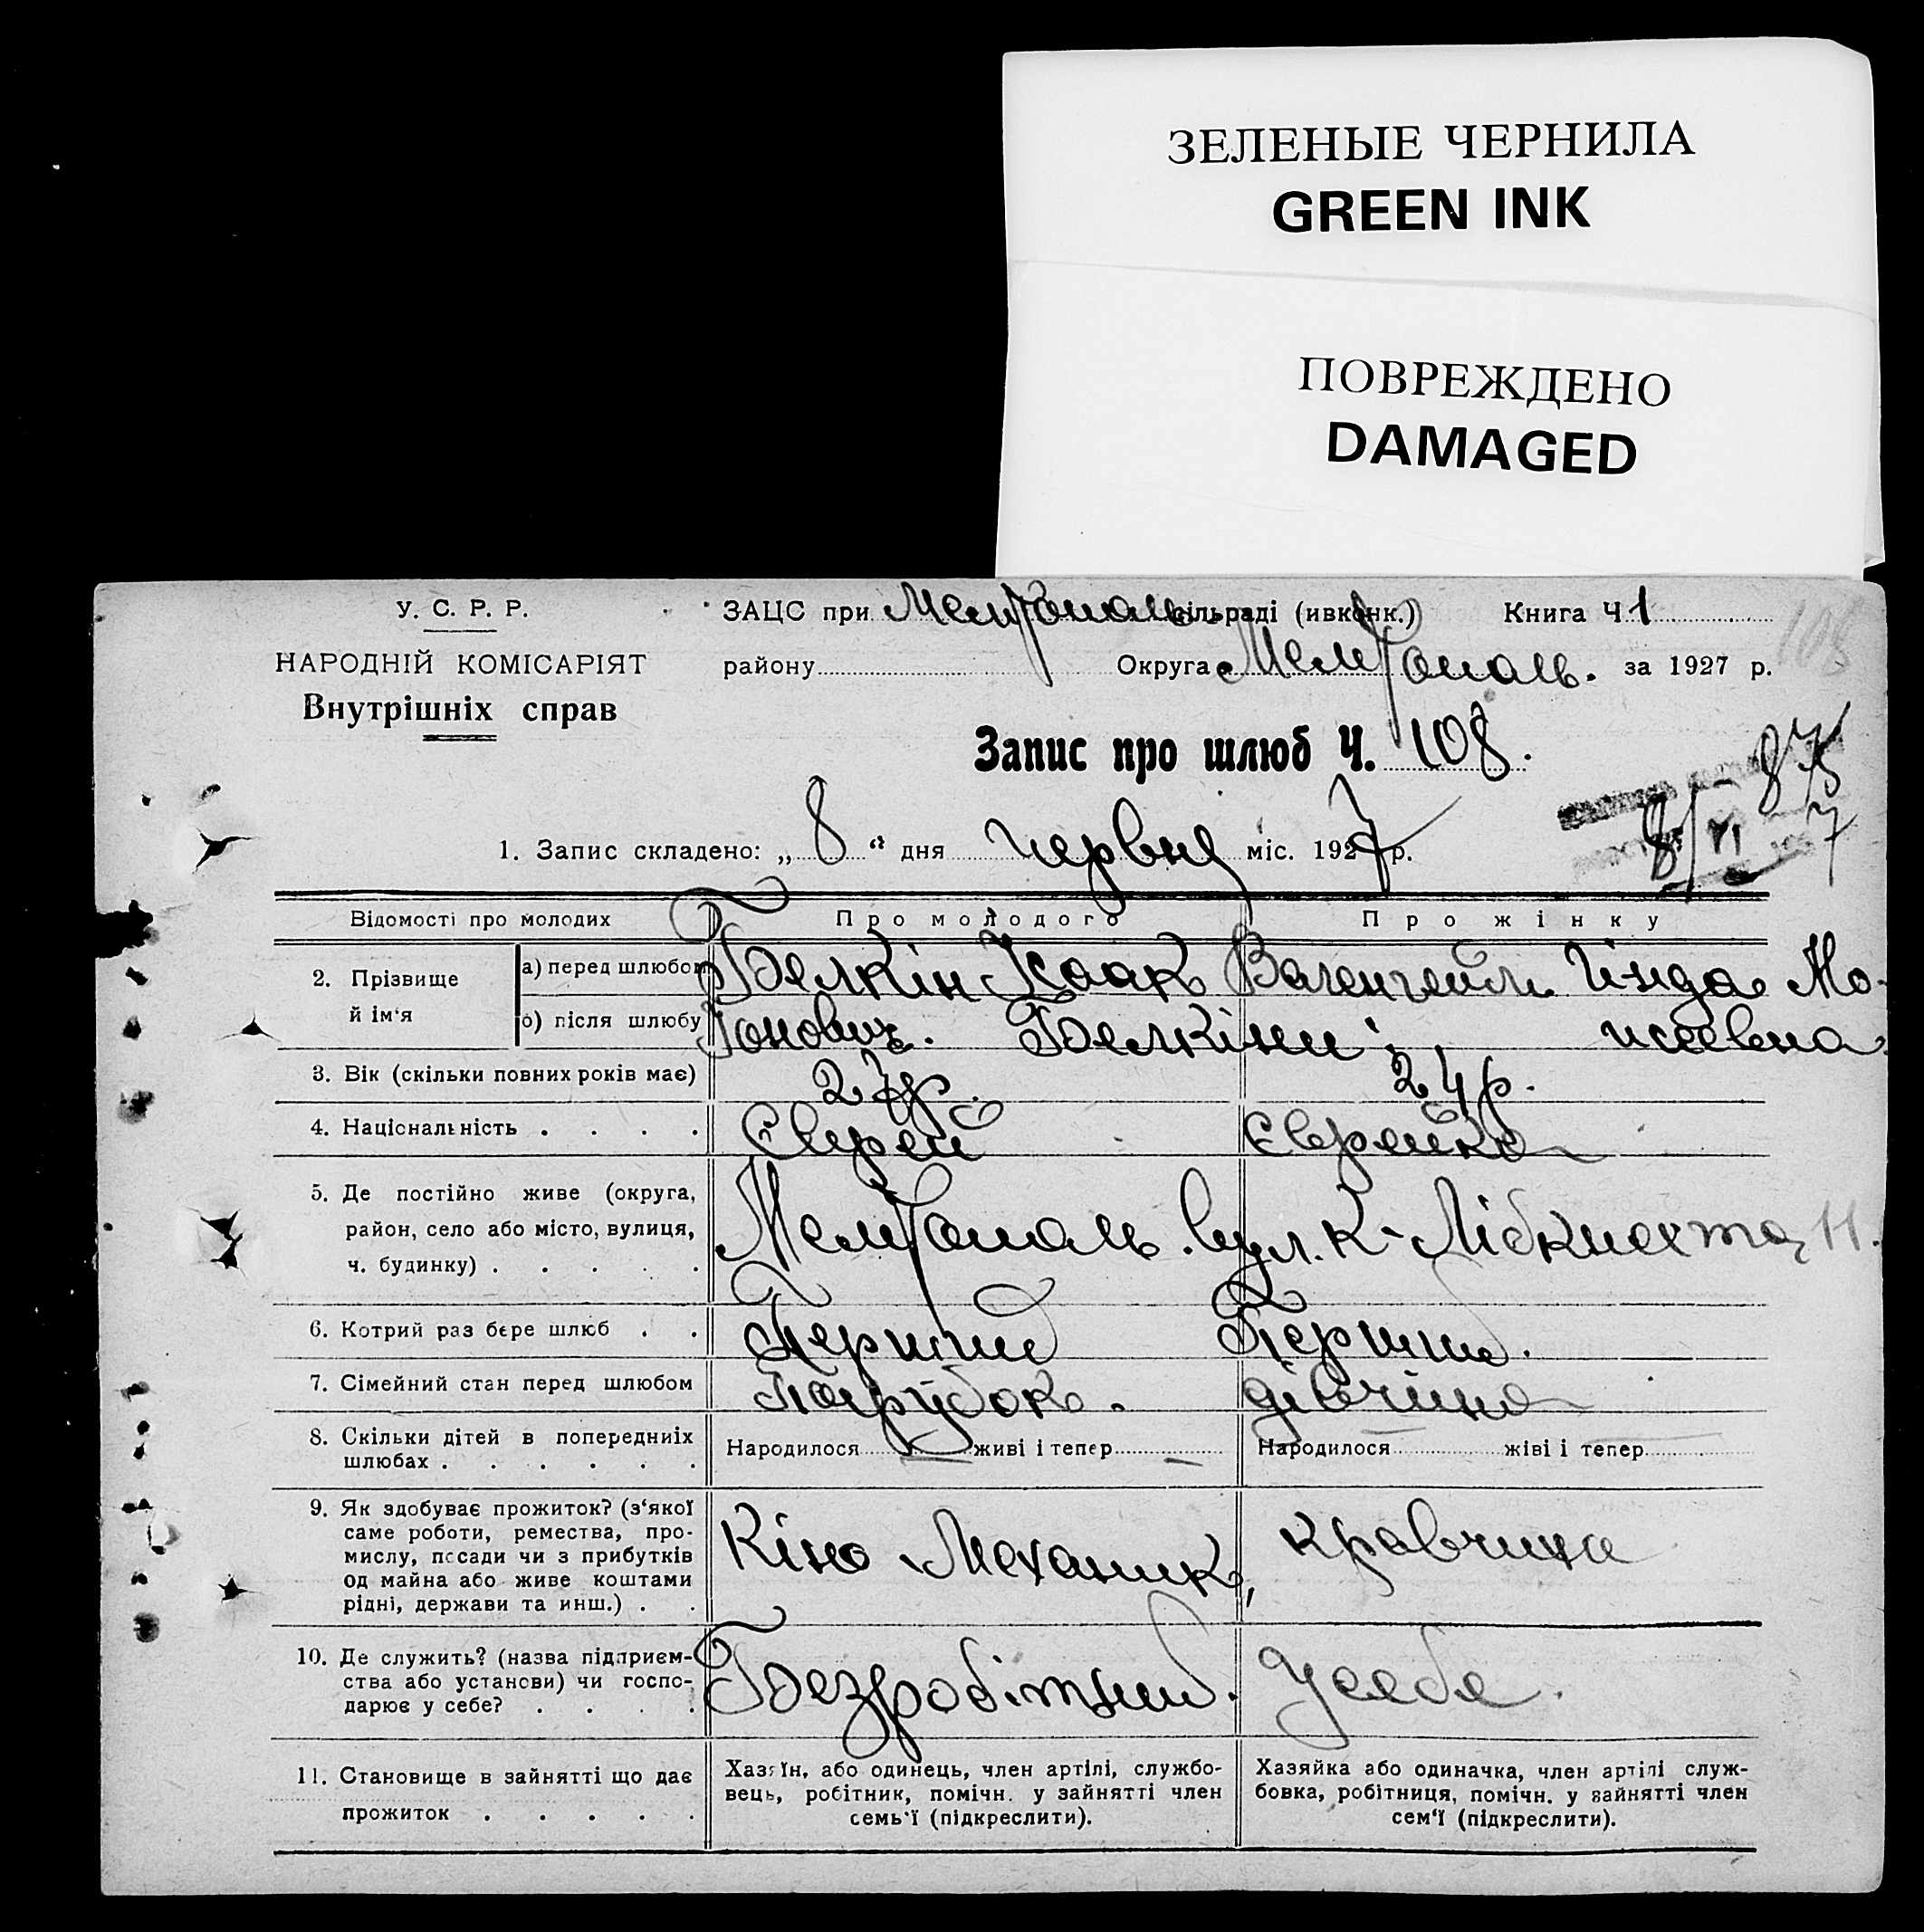 ЗЕЛЕНЫЕ ЧЕРНИЛА
GREEN INK
ПОВРЕЖДЕНО
DAMAGED
У. С. Р. Р.
НАРОДНІЙ КОМІСАРІЯТ
Внутрішніх справ
ЗАЦС при Мелітополь сільраді (ивконк.) Книга Ч 1
108
району Округа Мелітополь. за 1927 р.
Запис про шлюб Ч. 108.
8/VI 7
1. Запис складено: „ 8 “ дня червня міс. 1927 р.
Відомості про молодих Про молодого Про жінку
2. Прізвище й ім‘я
а) перед шлюбом Белкін Ісаак Гінда Мо-
о) після шлюбу Белкіни; исеевна
3. Вік (скільки повних років має) 27р. 24р.
4. Національність . . . . Єврей Єврейка
5. Де постійно живе (округа,
район, село або місто, вулиця,
ч. будинку) . . . . .
Мелітополь. вул. К-Лібкнехта, 11.
6. Котрий раз бере шлюб . . Перший Перший.
7. Сімейний стан перед шлюбом Парубок. дівчина
8. Скільки дітей в попередниіх
шлюбах . . . . . .
Народилося — живі і тепер — Народилося — жіві і тепер —
9. Як здобуває прожиток? (з‘якої
саме роботи, ремества, про-
мислу, посади чи з прибутків
од майна або живе коштами
рідні, держави та инш.) . .
Кіно Механик, кравчиха
10. Де служить? (назва підприєм-
ства або установи) чи госпо-
дарює у себе? . . . .
Безробітний. У себе.
11. Становище в зайнятті що дає
прожиток . . . . .
Хазяїн, або одинець, член артілі, службо-
вець, робітник, помічн. у зайнятті член
семь‘ї (підкреслити).
Хазяйка або одиначка, член артілі служ-
бовка, робітниця, помічн. у зайнятті член
сем‘ї (підкреслити).